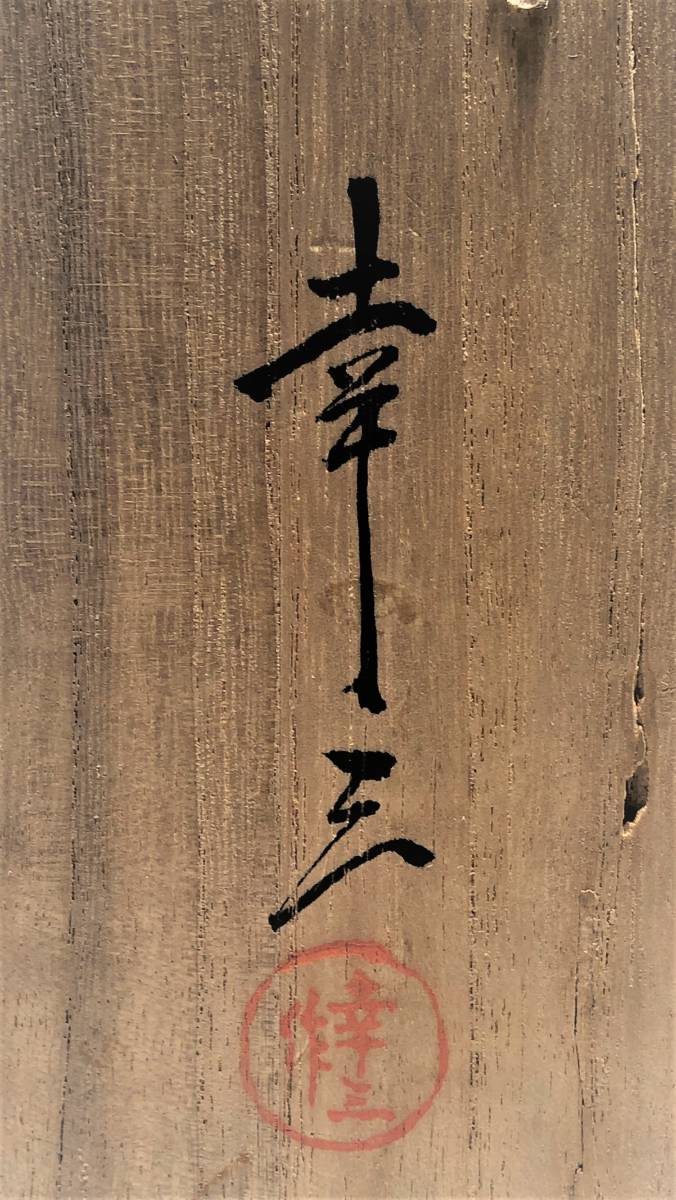 幸三
幸三作